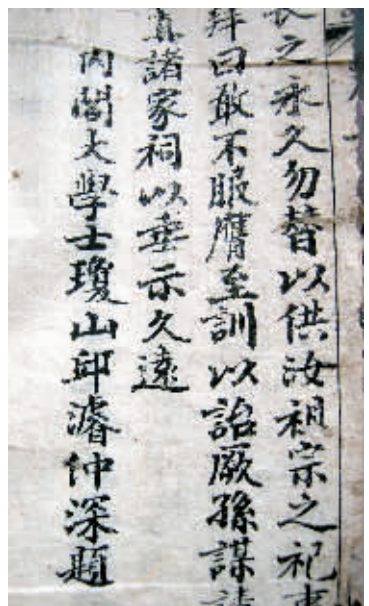 之永久勿替以供汝祖宗之祀
拜曰敢不服膺至訓以詒厥孫謀
寘諸家祠以垂示久遠
內閣大學士瓊山邱濬仲深題